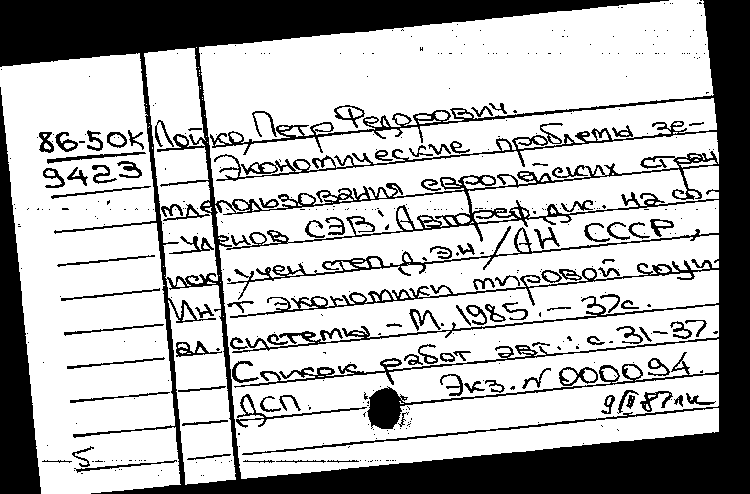 86-50К Лойко, Петр Федорович.
9423 Экономические проблемы зе-
млепользования европейских стран
-членов СЭВ: Автореф. дис. на со-
иск. учен. степ. д. э. н. / АН СССР,
Ин-т экономики мировой соци-
ал. системы. - М., 1985. - 37с.
Список работ авт.: с. 31-37.
ДСП. Экз. N 000094.
5